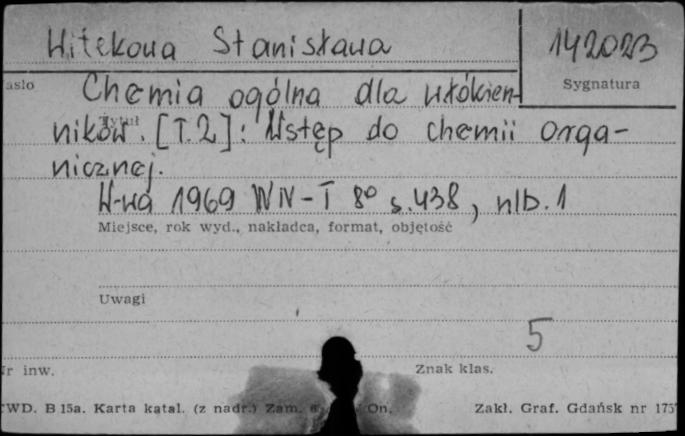 Witekowa Stanisława
142023
asło
Sygnatura
Chemia ogólna dla włókien-
Tytuł
ników. [T.2]: Wstęp do chemii orga-
nicznej.
W-wa 1969 WN-T 8° s.438, nlb.1
Miejsce, rok wyd., nakładca, format, objętość
Uwagi
5
r inw.
Znak klas.
WD. B 15a. Karta katal. (z nadr.) Zam. On. Zakł. Graf. Gdańsk nr 175